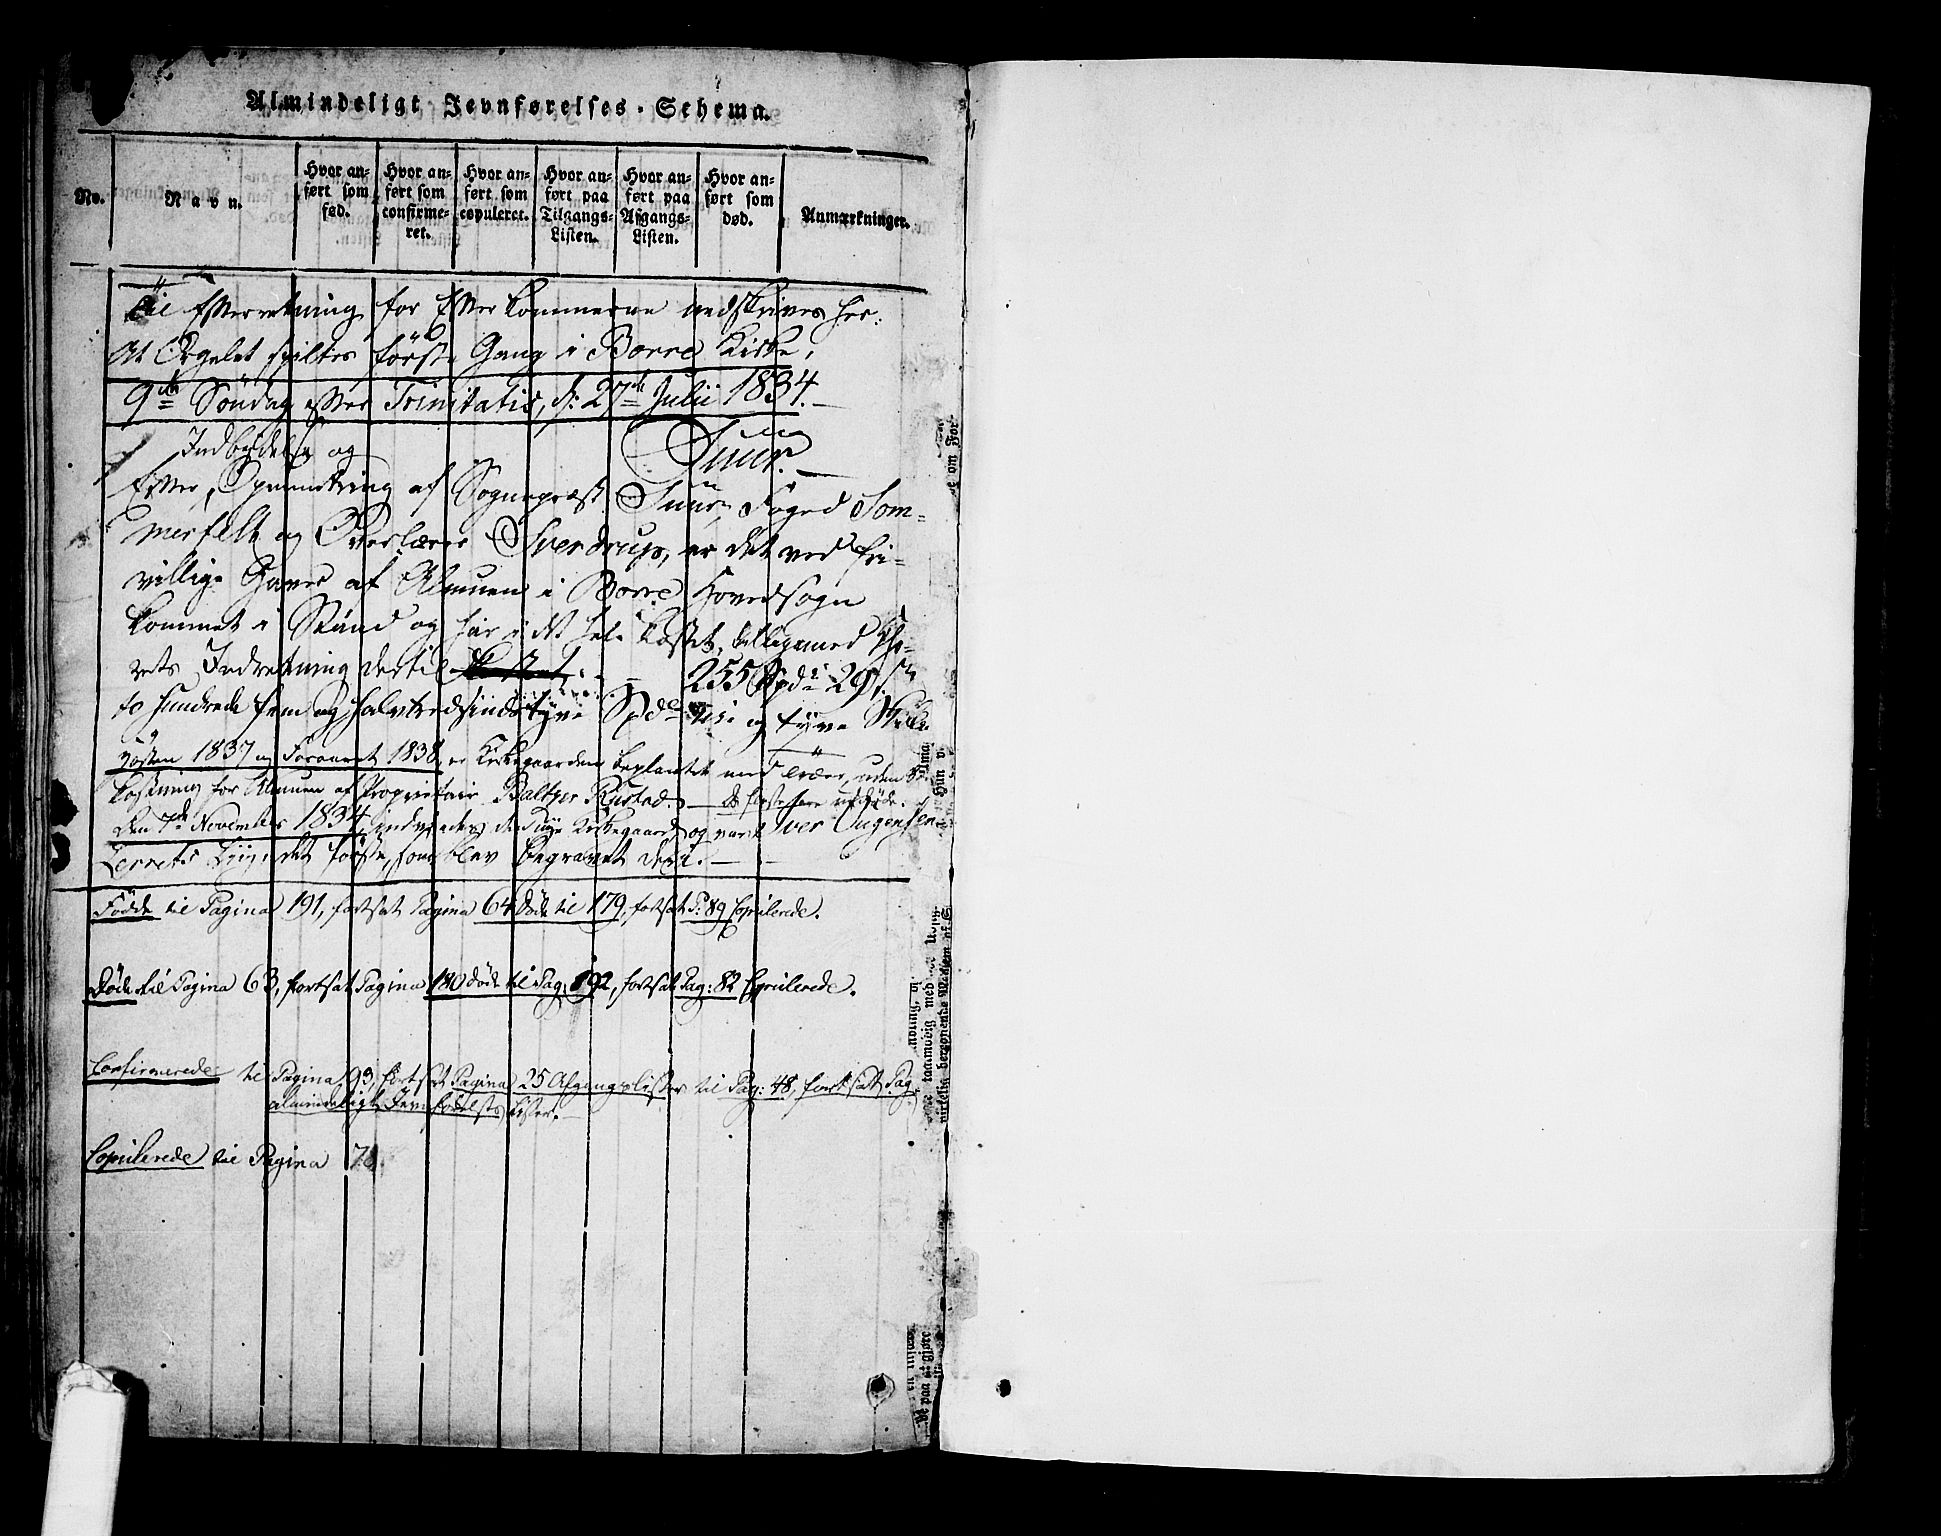 Almindeligt Jevnførelses-Schema.
No.
Navn.
Hvor an-
ført som
fød.
Hvor an-
ført som
confirme-
ret.
Hvor an-
ført som
copuleret.
Hvor an-
ført paa
Tilgangs-
Listen.
Hvor an-
ført paa
Afgangs-
Listen.
Hvor an-
ført som
død.
Anmærkninger.
Til Efterretning for Efterkommerne nedskrives her:
At Orgelet spiltes første Gang i Borre Kirke,
9de Söndag efter Trinitatis, d: 27de Julii 1834.
Indbydelse og
Suur.
Efter Opmuntring af Sognepræst Suur, Foged Som-
merfelt og Overlærer Sverdrup, er det ved fri-
villige Gaver af Almuen i Borre Hovedsogn
kommet i Stand og har i det hele kostet, tilligemed Cho-
rets Indretning dertil 255 Spd 29 s
to hundrede fem og halvtredsindstyve Spd ni og tyve Skill.
Høsten 1837 og Foraaret 1838 er Kirkegaarden beplantet med Træer, uden Be-
kostning for Almuen af Proprietair Baltzer Rustad. — De fleste ere uddöde.
Den 7de November 1834 indviedes den nye Kirkegaard og var Iver Augensen
Liig det første, som blev begravet deri. —
Födde til Pagina 191, fortsat Pagina 64 Döde til 179, fortsat P: 89 Copulerede.
Döde til Pagina 63, fortsat Pagina 180 Döde til Pag. 192, fortsat Pag: 82 Copulerede.
Confirmerede til Pagina 93, fortsat Pagina 25 Afgangslister til Pag: 48, fortsat Pag.
almindeligt Jevnførelses Lister.
Copulerede til Pagina 78.